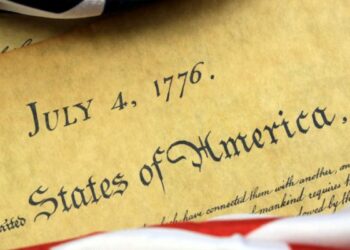 July 4, 1776.
United States of America,
have connected them with another, and
mankind requires